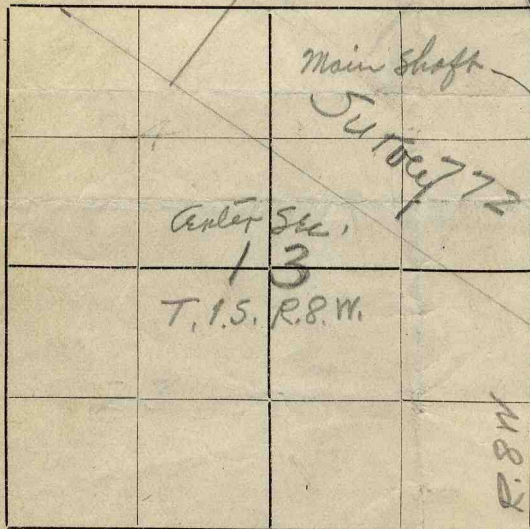 Main Shaft
Survey 772
Center Sec.
13
T.1.S. R.8.W.
R.8W